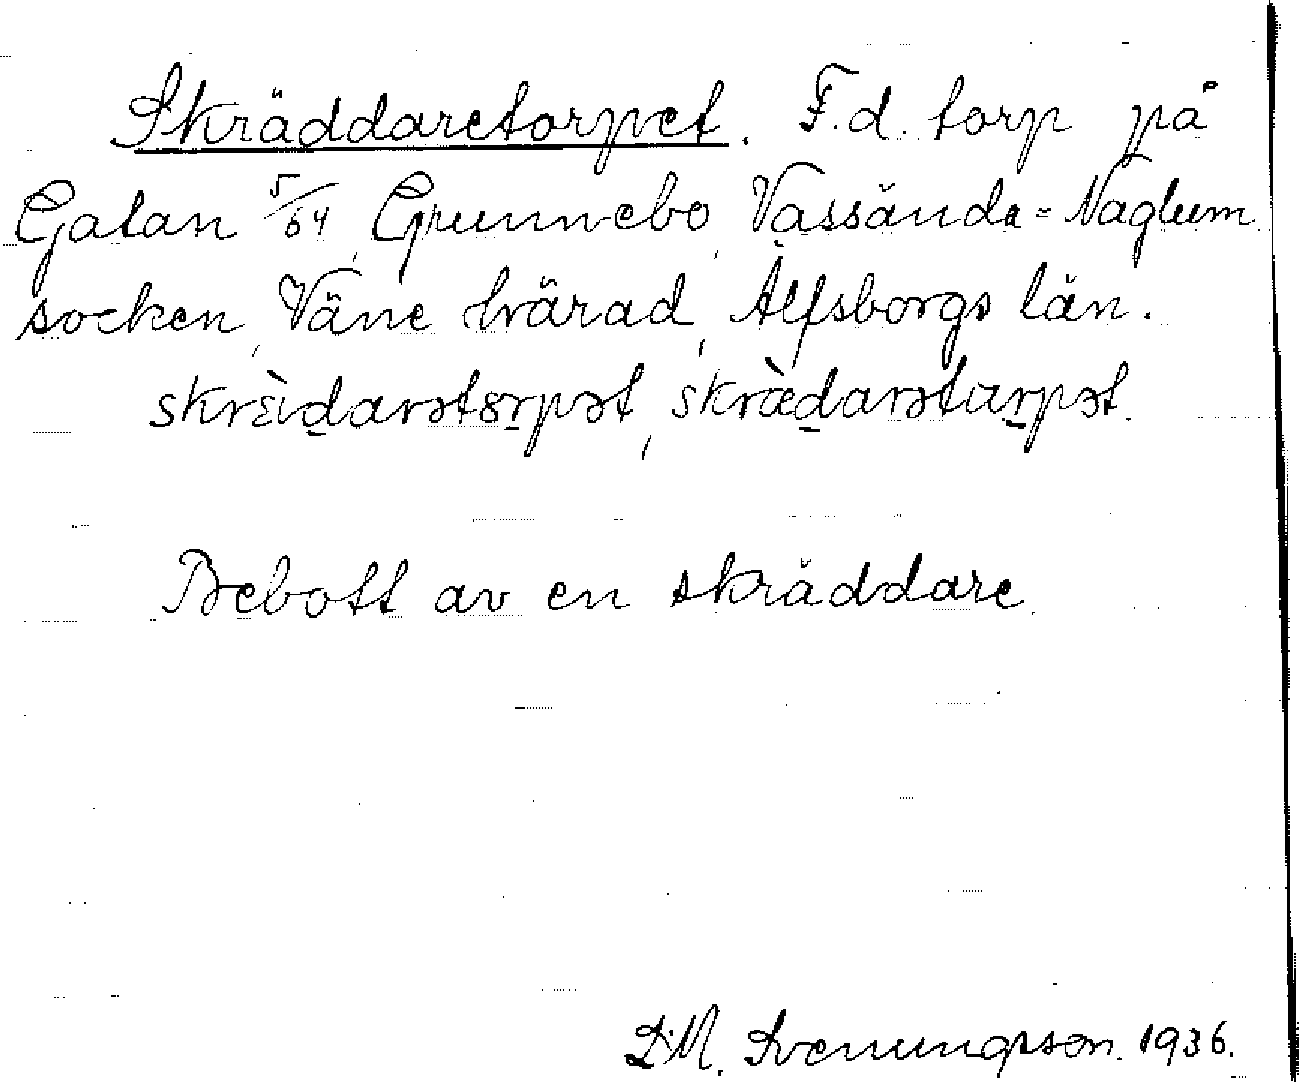 Skräddaretorpet. F.d. torp på
Gatan 5/64, Grunnebo, Vassända-Naglum
socken, Väne härad, Älfsborgs län.
skrɛ̀ɪd̲arətɞr̲pət, skræ̀d̲arətɑr̲pət.
Bebott av en skräddare.
D.M. Svenungsson. 1936.